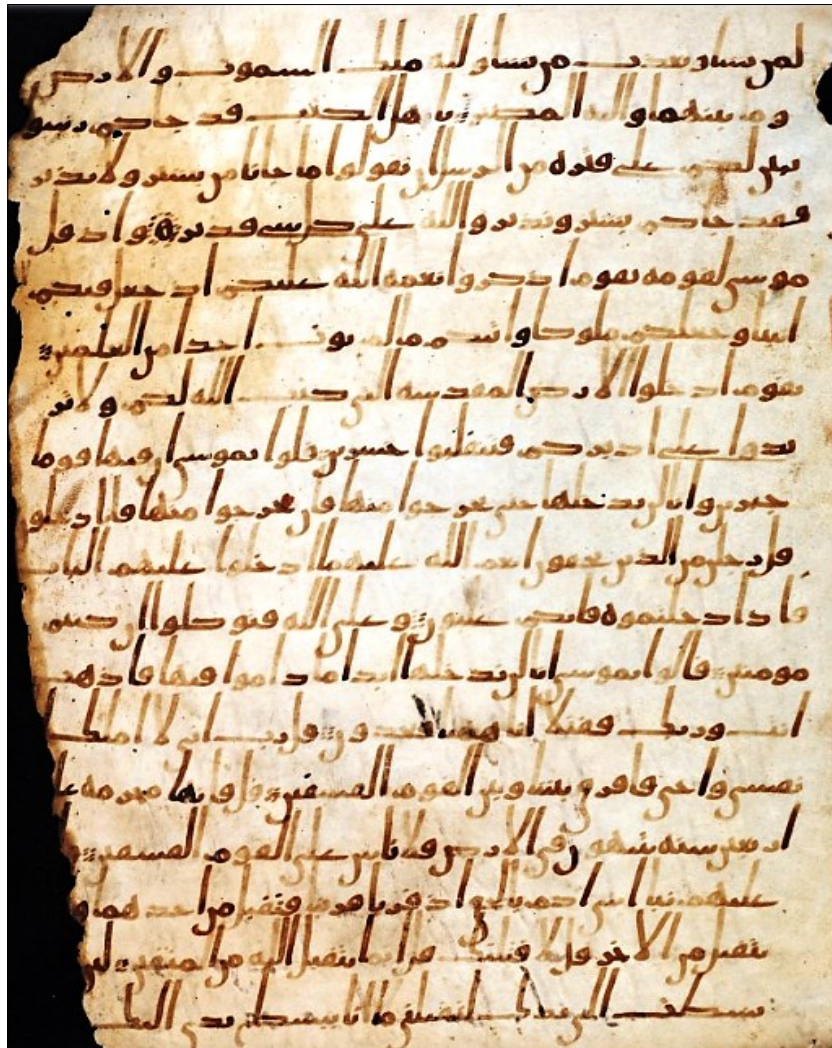 لمن يشا ويعذب من يشا ولله ملك السموت والارض
وما بينهما واليه المصير ياهل الكتب قد جاكم رسو
يبين لكم على فتره من الرسل ان تقولوا ما جانا من بشير ولا نذير
فقد جاكم بشير ونذير والله على كل شي قدير واذ قل
موسى لقومه يقوم اذكروا نعمه الله عليكم اذ جعل فيكم
انبيا وجعلكم ملوكا واتيكم ما لم يوت احدا من العلمين
يقوم ادخلوا الارض المقدسه التي كتب الله لكم ولا تر
تدوا على ادبركم فتنقلبوا خسرين قلوا يموسى ان فيها قوما
جبرين وانا لن ندخلها حتى يخرجوا منها فان يخرجوا منها فانا دخلو
قل رجلن من الذين يخفون انعم الله عليهما ادخلوا عليهم الباب
فاذا دخلتموه فانكم غلبون وعلى الله فتوكلوا ان كنتم
مومنين قالوا يموسى انا لن ندخلها ابدا ما داموا فيها فاذهب
انت وربك فقتلا انا ههنا قعدون قل رب اني لا املك ا
نفسي واخي فافرق بيننا وبين القوم الفسقين قل فانها محرمه علـ
اربعين سنه يتيهون في الارض فلا تاس على القوم الفسقين وا
عليهم نبا ابني ادم بالحق اذ قربا قربنا فتقبل من احدهما و
يتقبل من الاخر قل لاقتلنك قل انما يتقبل الله من المتقين لين
بسطت الي يدك لتقتلني ما انا ببسط يدي اليك